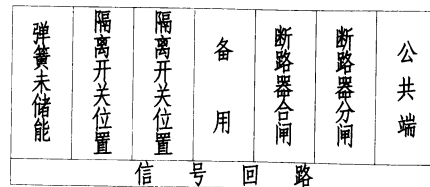 弹簧未储能
隔离开关位置
隔离开关位置
备用
断路器合闸
断路器分闸
公共端
信号回路